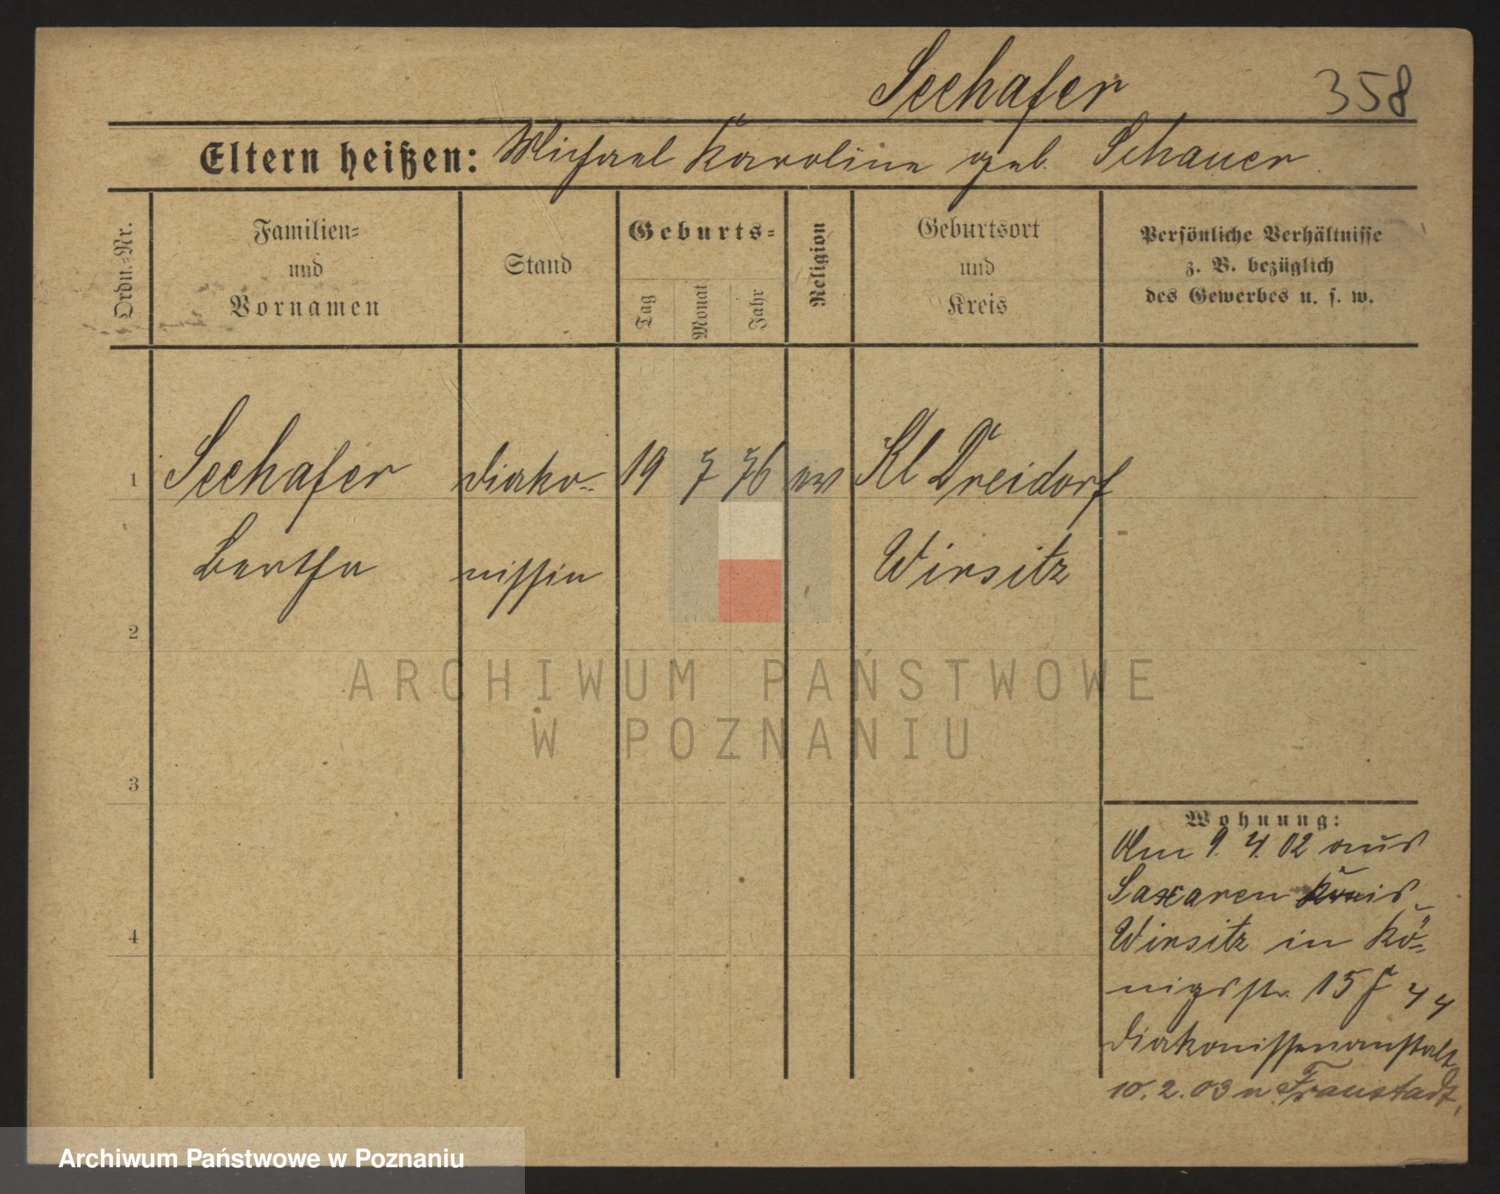 Seehafer 358
Eltern heißen: Michael Karoline geb. Schauer
Ordn.-Nr.
Familien-
und
Vornamen
Stand
Geburts-
Tag
Monat
Jahr
Religion
Geburtsort
und
Kreis
Persönliche Verhältnisse
z. B. bezüglich
des Gewerbes u. s. w.
1 Seehafer Diako- 19 7 76 ev Kl Dreidorf
Bertha nissin Wirsitz
2
3
4
ARCHIWUM PAŃSTWOWE
W POZNANIU
Wohnung:
Am 9. 4. 02 aus
Saxaren Kreis
Wirsitz in Kö-
nigsstr. 15
Diakonissenanstalt
10. 2. 03 n Fraustadt,
Archiwum Państwowe w Poznaniu